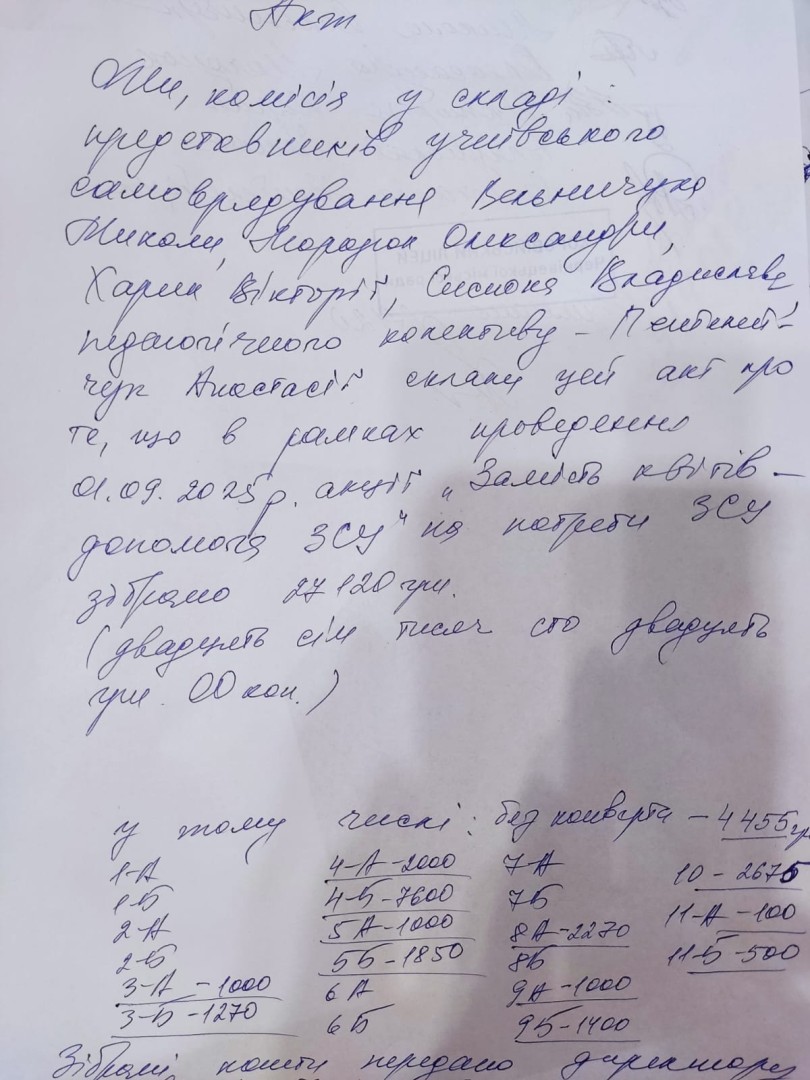 Акт
Ми, комісія у складі :
представників учнівського
самоврядування Вельничука
Миколи, Мородюк Олександри,
Харик Вікторії, Владислава
педагогічного колективу –
чук Анастасії склали цей акт про
те, що в рамках проведення
01.09.2025р. акції „Замість квітів –
допомога ЗСУ" на потреби ЗСУ
зібрано 27120 грн.
(двадцять сім тисяч сто двадцять
грн. 00 коп.)
у тому числі : без конверта – 4455 грн
1-А 4-А-2000 7-А 10 - 2675
1-Б 4-Б-7600 7Б 11-А -100
2-А 5А-1000 8А-2270 11-Б -500
2-Б 5Б-1850 8Б
3-А -1000 6А 9А-1000
3-Б -1270 6Б 9Б-1400
Зібрані кошти передано директору